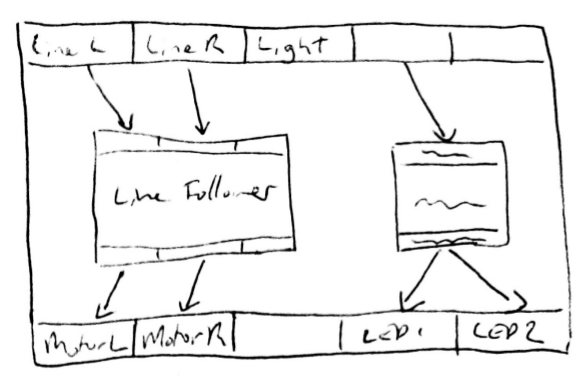 Line L Line R Light
Line Follower
Motor L Motor R LED1 LED2